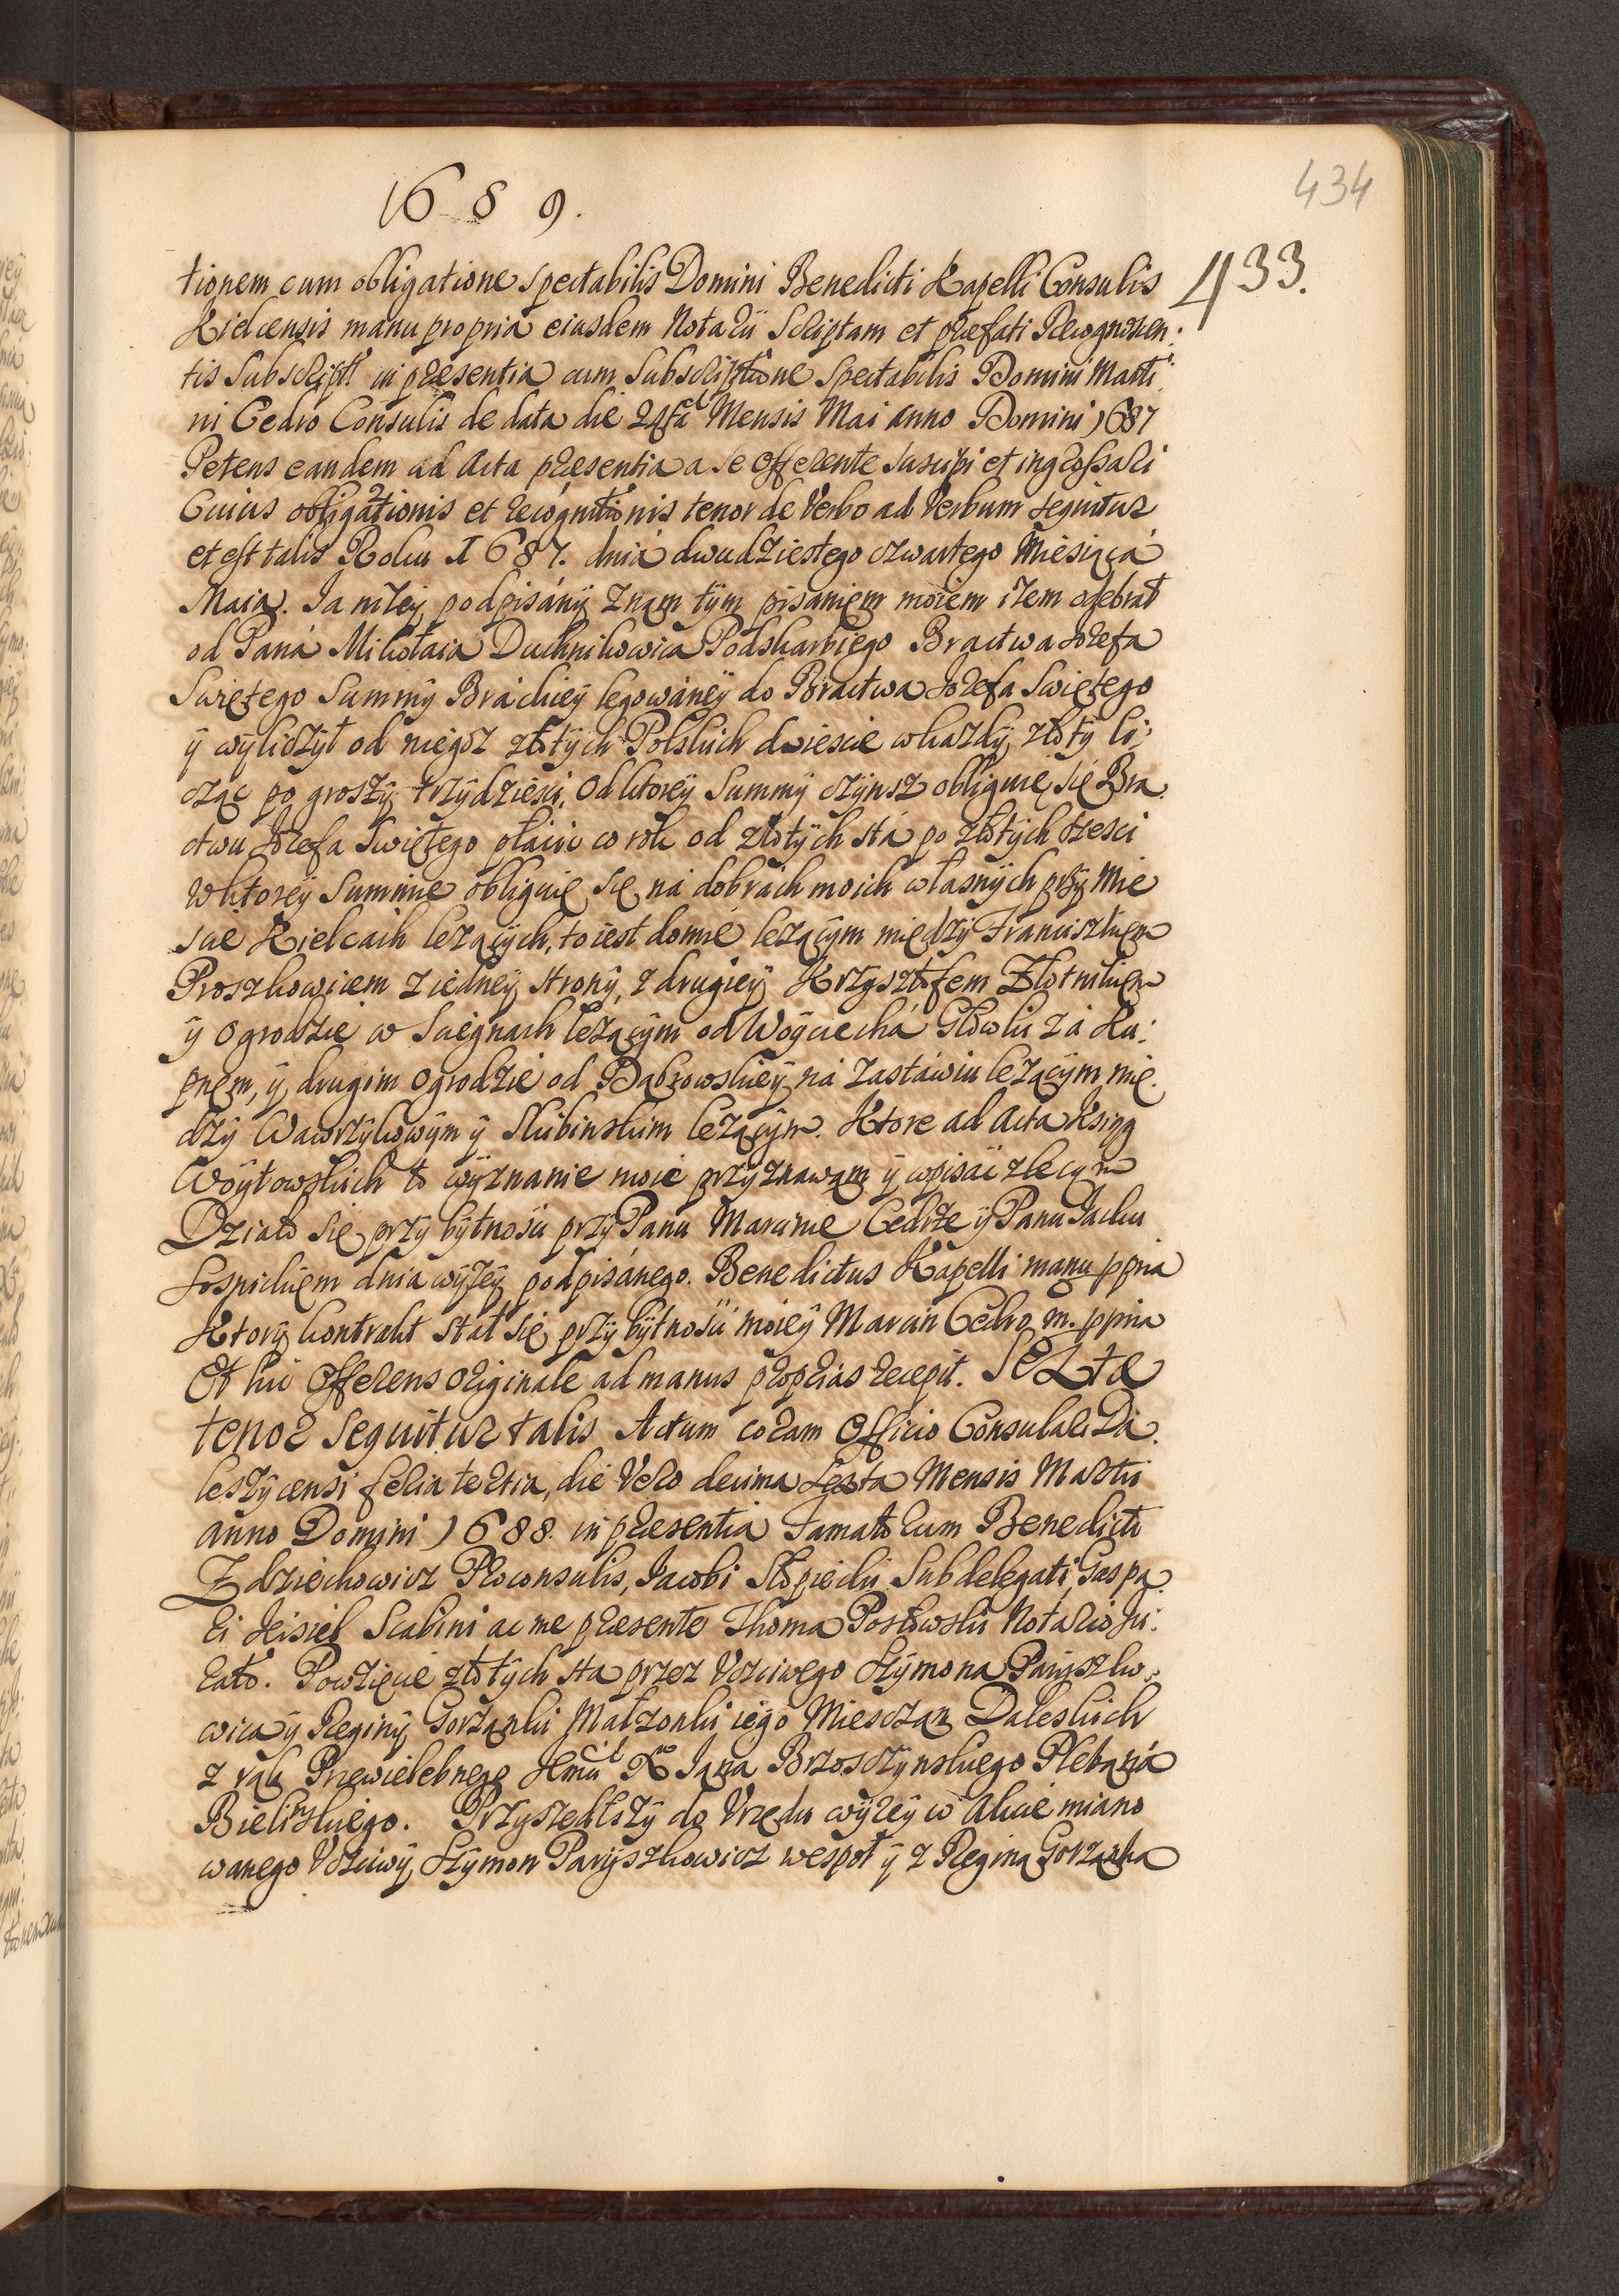 434
1689.
433.
tionem cum obligatione Spectabilis Domini Benedicti Kapelli Consulis
Kielcensis manu propria eiusdem Notarii Scriptam et præfati Recognoscen:
tis Subscript: in præsentia cum Subscriptione Spectabilis Domini Marti:
ni Cedro Consulis de data die 24ta Mensis Mai anno Domini 1687
Petens eandem ad Acta præsentia a se offerente suscipi et ingrossari
Cuius obligationis et recognitionis tenor de Verbo ad Verbum sequitur
et est talis Roku 1687. dniá dwudziestego czwartego Miesiąca
Maia. Ia niżey podpisány znam tym pisaniem moiem iżem odebrał
od Paná Mikołaia Duchnikowica Podskarbiego Bractwa Jozefa
Swiętego Summy Brackiey legowáney do Bractwa Jozefa Swiętego
ÿ wyliczył od niegoz złotych Polskich dwiescie wkazdy złoty li:
cząc po groszy trzydziesci, Od ktorey Summy czynsz obliguię się Bra:
ctwu Jozefa Swiętego płácic co rok od złotych stá po złotych szesci
Wktorey Summie obliguię się ná dobrách moich własnych przy Mie
scie Kielcach lezących, to iest domie lezącym między Franciszkiem
Proszkowicem z iedney strony, z drugiey Krzysztofem Złotnikiem
ÿ Ogrodzie w Sciegnach lezącym od Woyciechá Głowki zá Ku:
pnem, ÿ drugim Ogrodzie od Dąbrowskiey ná zastáwiu lezącym mię:
dzy Wawrzykowym ÿ Skibinskim lezącym. Ktore ad Acta Ksiąg
Woytowskich to wyznanie moie przyznawam ÿ wpisác zlecam
Działo się przy bytnosci przy Panu Marcinie Cedrze ÿ Panu Iacku
Sospickiem dnia wyzey podpisánego. Benedictus Kapelli manu ppria
Ktory kontrakt stał się przy bytnosci moiey Marcin Cedro m. ppria
Et hic Offerens Originale ad manus proprias recepit. Sexta
tenor Sequitur talis Actum coram Officio Consulari Da:
leszycensi feria tertia, die Vero decima Sexta Mensis Martii
anno Domini 1688. in præsentia Famatorum Benedicti
Zdziechowicz Proconsulis, Iacobi Słopiecki Subdelegati, Gaspa:
ri Kisiel Scabini ac me præsente Thoma Posłowski Notario Iu:
rato. Powzięcie złotych sta przez Vczciwego Szymona Paryszko:
wica ÿ Reginy Gorzanki Małzonki iego Miesczan Daleskich
z rąk Przewielebnego Iana Brzosczynskiego Plebaná
Bielinskiego. Przyszedłszy do Vrzędu wyzey w Akcie miano
wanego Vczciwy Szymon Paryszkowicz wespoł ÿ z Regina Gorzanka